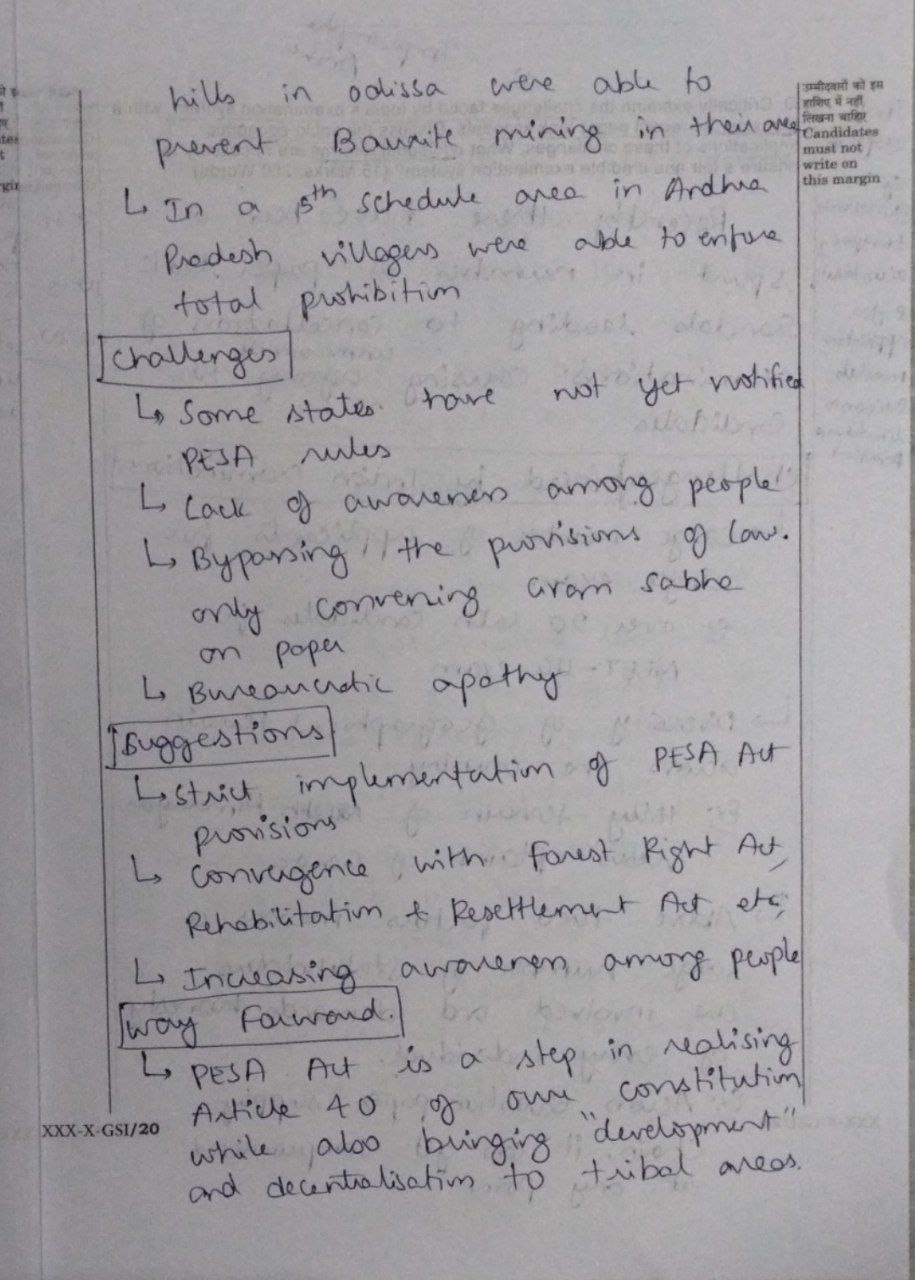 hills in odissa were able to
prevent Bauxite mining in their area
↳ In a 5th Schedule area in Andhra
Pradesh villagers were able to enforce
total prohibition
Challenges
↳ Some states have not yet notified
PESA rules
↳ Lack of awareness among people
↳ Bypassing the provisions of law.
only convening Gram Sabha
on paper
↳ Bureaucratic apathy
Suggestions
↳ Strict implementation of PESA Act
provisions
↳ Convergence with Forest Right Act,
Rehabilitation & Resettlement Act etc,
↳ Increasing awareness among people
Way Forward.
↳ PESA Act is a step in realising
Article 40 of our constitution
while also bringing "development"
and decentralisation to tribal areas.
उम्मीदवारों को इस
हाशिए में नहीं
लिखना चाहिए
Candidates
must not
write on
this margin
XXX-X-GSI/20